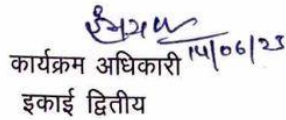 14/06/23
कार्यक्रम अधिकारी
इकाई द्वितीय